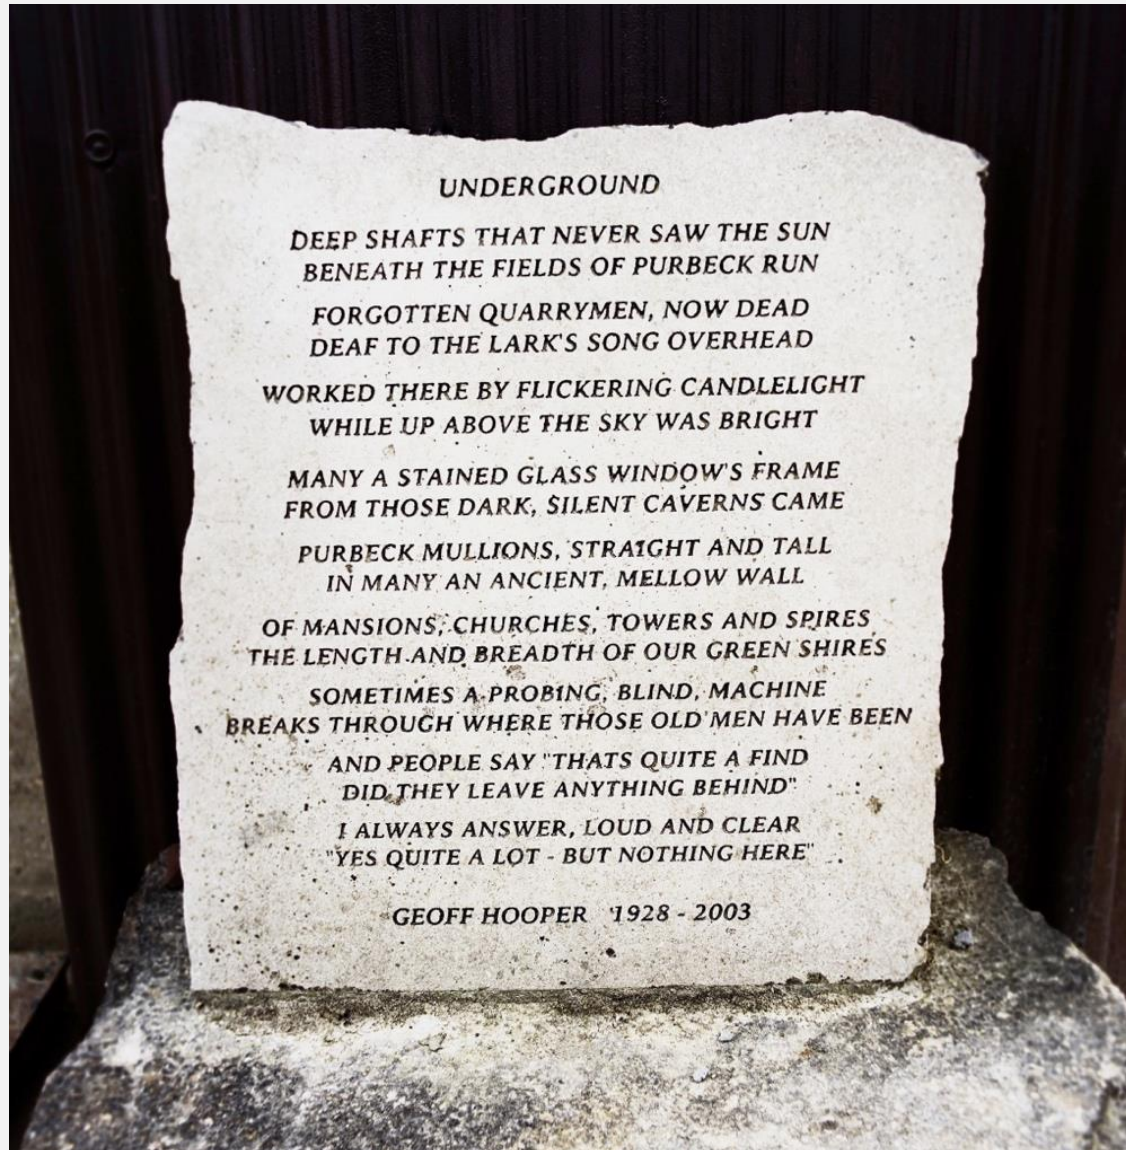 UNDERGROUND
DEEP SHAFTS THAT NEVER SAW THE SUN
BENEATH THE FIELDS OF PURBECK RUN
FORGOTTEN QUARRYMEN, NOW DEAD
DEAF TO THE LARK'S SONG OVERHEAD
WORKED THERE BY FLICKERING CANDLELIGHT
WHILE UP ABOVE THE SKY WAS BRIGHT
MANY A STAINED GLASS WINDOW'S FRAME
FROM THOSE DARK, SILENT CAVERNS CAME
PURBECK MULLIONS, STRAIGHT AND TALL
IN MANY AN ANCIENT, MELLOW WALL
OF MANSIONS, CHURCHES, TOWERS AND SPIRES
THE LENGTH AND BREADTH OF OUR GREEN SHIRES
SOMETIMES A PROBING, BLIND, MACHINE
BREAKS THROUGH WHERE THOSE OLD MEN HAVE BEEN
AND PEOPLE SAY "THATS QUITE A FIND
DID THEY LEAVE ANYTHING BEHIND"
I ALWAYS ANSWER, LOUD AND CLEAR
"YES QUITE A LOT - BUT NOTHING HERE"
GEOFF HOOPER 1928 - 2003